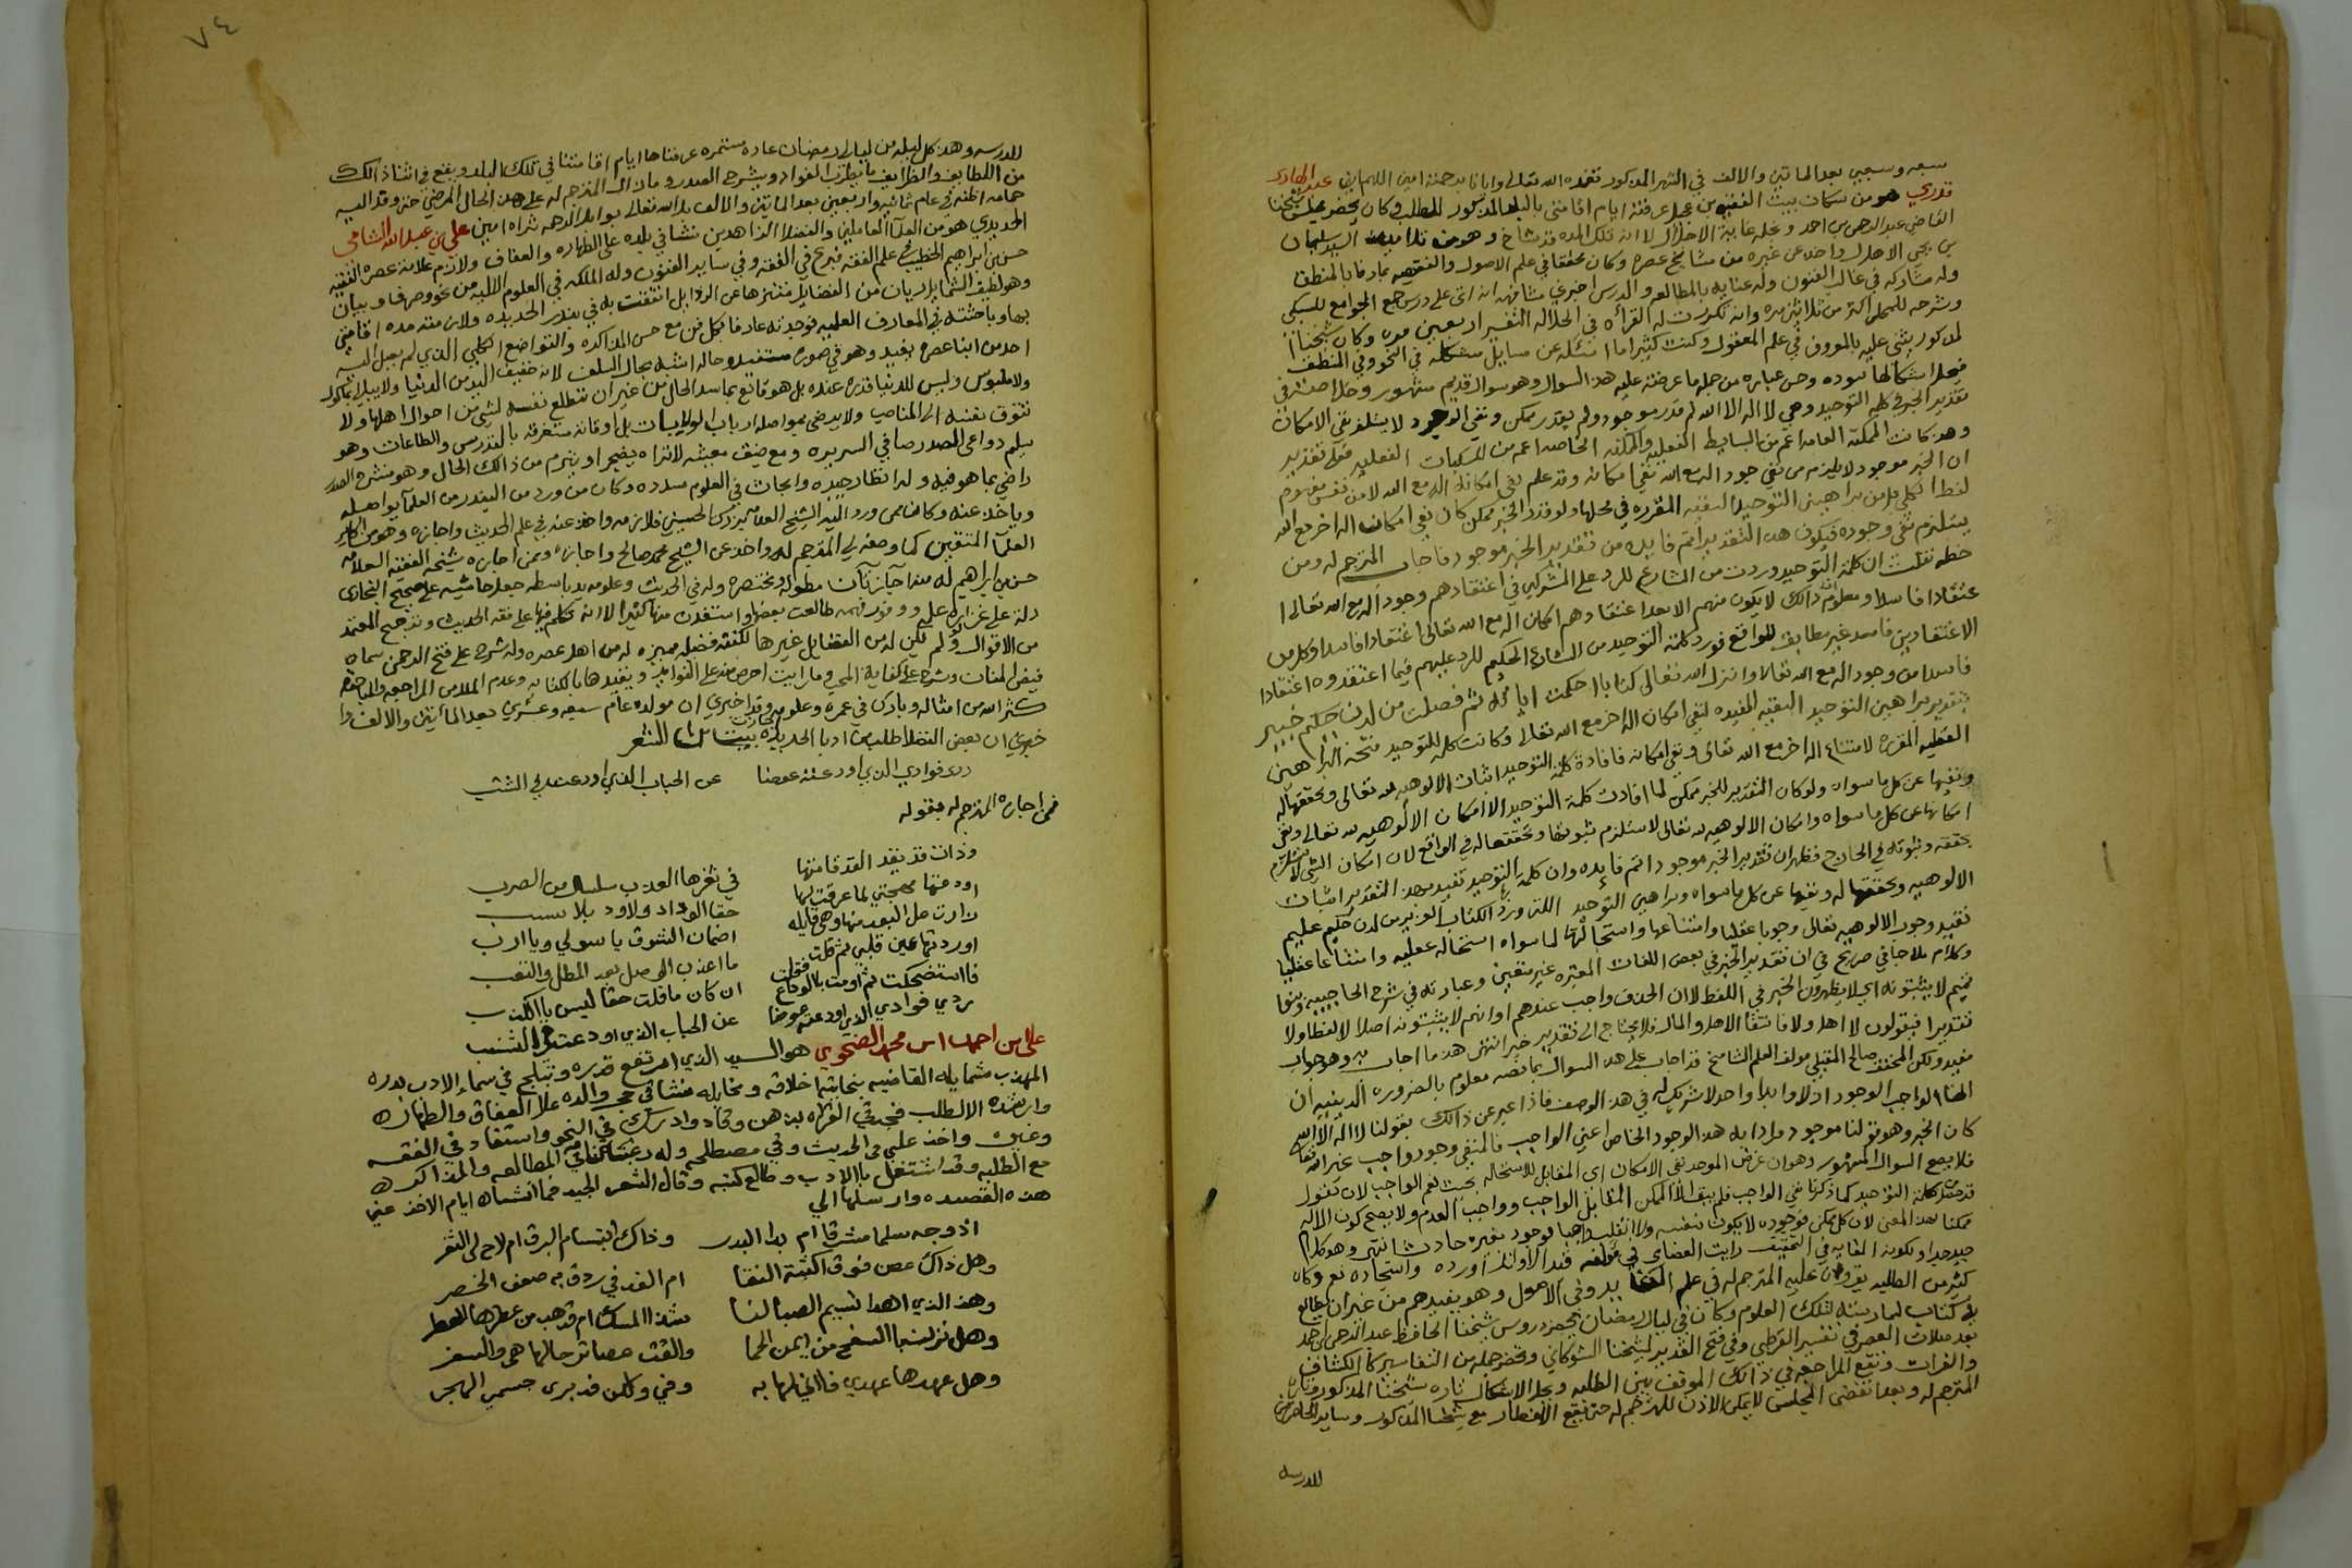 سبعه وسبعين بعد الماتين والالف في الشهر المذكور تغمده الله تعالى وايانا برحمته امين اللهم امين عبد الهادى
قدري هو من سكان بيت الفقيه بن عجيل عرفته ايام اقامتي بالبلد المذكور للطلب وكان يحضر مجلس شيخنا
القاضي عبد الرحمن بن احمد ويجله غاية الاجلال لا انه تلك المده قد شاخ وهو من تلاميذ السيد سليمان
بن يحيى الاهدل واخذ عن غيره من مشايخ عصره وكان محققا في علم الاصول والفقه عارفا بالمنطق
وله مشاركه في غالب الفنون وله عنايه بالمطالعه والدرس اخبرني مشافهه انه اتى على درس جمع الجوامع للسبكي
وشرحه للمحلي اكثر من ثلاثين مره وانه تكررت له القراه في الجلاله التفسير اربعين مره وكان شيخنا ا
لمذكور يثني عليه بالمعروف في علم المعقول وكنت كثيرا ما اسئله عن مسايل مشكله في النحو وفي المنطق
فيحل اشكالها بتوده وحسن عباره من جمله ما عرضته عليه هذا السوال وهو سوال قديم مشهور
تقدير الخبر في كلمه التوحيد وهي لا اله الا الله لم قدر موجود ولم يقدر ممكن ونفي الوجود لا يستلزم نفي الامكان
وهذا كانت الممكنه العامه اعم من البسايط الفعليه والممكنه الخاصه اعم من المركبات الفعليه فعلى تقدير
ان الخبر موجود لا يلزم من نفي وجود اله مع الله نفي امكانه وقد علم نفي امكانه اله مع الله لا من نفس مفهوم
لفظ الكلي بل من براهين التوحيد اليقينيه المقرره في محلها ولو قدر الخبر ممكن كان نفي امكان اله اخر مع الله
يستلزم نفي وجوده فيكون هذا التقدير اتم فايده من تقدير الخبر موجود فاجاب المترجم له ومن
خطه نقلت ان كلمة التوحيد وردت من الشارع للرد على المشركين في اعتقادهم وجود اله مع الله تعالى ا
عتقادا فاسدا ومعلوم ان ذالك لا يكون منهم الا بعد اعتقادهم امكان اله مع الله تعالى اعتقادا فاسدا وكل من
الاعتقادين فاسد غير مطابق للواقع فورد كلمة التوحيد من الشارع الحكيم للرد عليهم فيما اعتقدوه اعتقادا
فاسدا من وجود اله مع الله تعالى وانزل الله تعالى كتابا احكمت اياته ثم فصلت من لدن حكيم خبير
بتقدير براهين التوحيد اليقينيه المفيده لنفي امكان اله اخر مع الله تعالى وكانت كلمه للتوحيد نتيجه البراهين
القطعيه المقرره لامتناع اله اخر مع الله تعالى ونفي امكانه فافادة كلمة التوحيد اثبات الالوهيه لله تعالى وتحققها له
ونفيها عن كل ما سواه ولو كان التقدير للخبر ممكن لما افادت كلمة التوحيد الا امكان الالوهيه لله تعالى ونفي
امكانها عن كل ما سواه وامكان الالوهيه لله تعالى لا يستلزم ثبوتها وتحققها له في الواقع لان امكان الشي لا يستلزم
تحققه وثبوته في الخارج فظهر ان تقدير الخبر موجود اتم فايده وان كلمة التوحيد تفيد بهذا التقدير اثبات
الالوهيه وتحققها له ونفيها عن كل ما سواه وبراهين التوحيد التي ورد بها الكتاب العزيز من لدن حكيم عليم
تفيد وجوب الالوهيه تعالى وجوبا عقليا وامتناعها واستحالتها لما سواه استحاله عقليه وامتناعا عقليا
وكلام ملا جامي صريح في ان تقدير الخبر في بعض اللغات المعتبره غير متعين وعبارته في شرح الحاجبيه وبنوا
تميم لا يثبتونه اي لا يظهرون الخبر في اللفظ لان الحذف واجب عندهم او انهم لا يثبتونه اصلا لا لفظا ولا
تقديرا فيقولون لا اهل ولا مال انتفا الاهل والمال فلا يحتاج الى تقدير خبر انتهى هذا ما اجاب به وهو جواب
مفيد ولكن المحقق صالح المقبلي مولف العلم الشامخ قد اجاب على هذا السوال بما نصه معلوم بالضروره الدينيه ان
الهنا الواجب الوجود ازلا وابدا واحد لا شريك له في هذا الوصف فاذا عبر عن ذالك بقولنا لا اله الا الله
كان الخبر وهو قولنا موجود مرادا به هذا الوجود الخاص اعني الواجب فالمنفي وجود واجب غير الله تعالى
فلا يصح السوال المشهور وهو ان غرض الموحد نفي الامكان اي المقابل للاستحاله بحيث يعم الواجب لان نقول
قد حصل كلمة التوحيد كما ذكرنا نفي الواجب فلم يبق الا الممكن المقابل الواجب وواجب العدم ولا يصح كون الاله
ممكنا بهذا المعنى لان كل ممكن فوجوده لا يكون بنفسه والا انقلب واجبا فوجود بغيره حادث انتهى وهو كلام
جيد جدا ولكونه الغايه في التحقيق رايت العضاي في مولفه قد الاوائل اورده واستجاده نعم وكان
كثير من الطلبه يقرون عليه المترجم له في علم الفقه وفي الاصول وهو يفيدهم من غير ان يطالع
في كتاب لممارسته لتلك العلوم وكان في ليال رمضان يحضر دروس شيخنا الحافظ عبد الرحمن بن احمد
بعد صلات العصر في تفسير القرطبي وفي فتح القدير لشيخنا الشوكاني وتحضر جمله من التفاسير كالكشاف
والفرات وتقع المراجعه في ذالك الموقف بين الطلبه ويحل الاشكال تاره شيخنا المذكور وتارة
المترجم له وبعد تقضي المجلس لا يمكن الاذن للمترجم له حتى يقع الافطار مع شيخنا المذكور وساير الحاضرين
للدرسه
٧٤
للدرسه وهذا كل ليله من ليالي رمضان عاده مستمره عرفناها ايام اقامتنا في تلك البلد ويقع في اثنا ذالك
من اللطايف والظرايف ما يطرب الفواد ويشرح الصدر وما زال المترجم له على هذا الحال المرضي حتى وقد اليه
حمامه اظنه في عام ثمانيه واربعين بعد الماتين والالف بل الله تعالى بوابل الرحمه ثراه امين علي بن عبد الله الشامي
الحديدي هو من العلما العاملين والفضلا الزاهدين نشا في بلده على الطهاره والعفاف ولازم علامة عصره الفقيه
حسن بن ابراهيم الخطيب في علم الفقه فبرع في الفقه وفي ساير الفنون وله الملكه في العلوم الاليه من نحو وصرف وبيان
وهو لطيف الشمايل ريان من الفضايل متنزها عن الرذايل اتفقت به في بندر الحديده ولازمته مده اقامتي
بها وباحثته في المعارف العلميه فوجدته عارفا بكل فن مع حسن المذاكره والتواضع الكلي الذي لم يصل اليه
احد من ابنا عصره يفيد وهو في صورة مستفيد وحاله اشبه بحال السلف لانه خفيف اليد من الدنيا ولا يبالي بماكول
ولا ملبوس وليس للدنيا قدر عنده بل هو قانع بما سد الحال من غير ان تتطلع نفسه لشي من احوال اهلها ولا
تتوق نفسه الى المناصب ولا يرضى بمواصله ارباب الولايات بل اوقاته مستغرقه بالتدريس والطاعات وهو
سليم دواعي الصدر صافي السريره ومع ضيق معيشه لا تراه يضجر او يتبرم من ذالك الحال وهو منشرح الصدر
راضي بما هو فيه وله انظار جيده وابحاث في العلوم مسدده وكان من ورد من البندر من العلما يواصله
وياخذ عنه وكان ممن ورد اليه الشيخ العلامه الحسيني فلازمه واخذ عنه في علم الحديث واجازه وهو من اكابر
العلما المتقين كما وصفه لي المترجم له واخذ عن الشيخ محمد صالح واجازه وممن اجازه شيخه الفقيه العلامه
حسن بن ابراهيم له منه اجازتان مطوله ومختصره وله في الحديث وعلومه يد باسطه جعل حاشيه على صحيح البخاري
دلة على غزارة علمه ووفور فهمه طالعت بعضها واستفدت منها كثيرا لا انه تكلم فيها على فقه الحديث وترجيح المعتمد
من الاقوال ولو لم يكن له من الفضايل غيرها لكفته فضله مميزه له من اهل عصره وله شرح على فتح الرحمن سماه
فيض المنان وشرح على كفاية المحتج وما رايت احرص منه على الفوايد وتقيدها بالكتابه وعدم الملل من المراجعه والمباحثه
كثر الله من امثاله وبارك في عمره وعلومه وقد اخبرني ان مولده عام سبعه وعشرين بعد الماتين والالف وا
خبرني ان بعض الفضلا طلب من ادبا الحديده اجازت بيت من الشعر
ردى فوادي الذي اودعته عوضا عن الحباب الذي اودعت في الشنب
فمن اجازه المترجم له بقوله
وذات قد يقد القد قامتها في ثغرها العذب سلسال من الضرب
اودعتها مهجتي لما عرفت لها حقا الوداد ولاود بلا سبب
زارت على البعد منها وهي قايله اضمان الشوق يا سولي ويا ارب
اوردتها عين قلبي ثم قلت ما اعذب الوصل بعد المطل والتعب
فااستضحكت ثم اومت بالوداع فقلت ان كان ما قلت حقا ليس باالكذب
ردي فوادي الذي اودعته عوضا عن الحباب الذي اودعت في الشنب
علي بن احمد بن محمد الضحوي هو السيد الذي ارتفع قدره وتبلج في سماء الادب بدره
المهذب شمايله القاضيه بنجابته اخلاقه ومخايله منشاه في حجر والده على العفاف والطهاره
وارشده الا لطلب فجد في القراه بذهن وقاد وادرك في النحو واستفاد في الفقه
وغيره واخذ علي في الحديث وفي مصطلحه وله رغبه في المطالعه والمذاكره
مع الطلبه وقد اشتغل باالادب وطالع كتبه وقال الشعر الجيد فمما انشاه ايام الاخذ عني
هذه القصيده وارسلها الي
اذ وجه سلما مشرقا ام بدا البدر وذاك ابتسام البرق ام لاح لي الثغر
وهل ذاك غصن فوق اكثبة النقا ام القد في ردف به ضعف الخصر
وهذ الذي اهدا نسيم الصبا لنا شذا المسك ام قد هب من عطرها العطر
وهل نزلت باالسفح من ايمن الحما والقت عصا ترحالها هي والسفر
وهل عهدها عهدي فااني لها به وفي ولكن قد برى جسمي الهجر